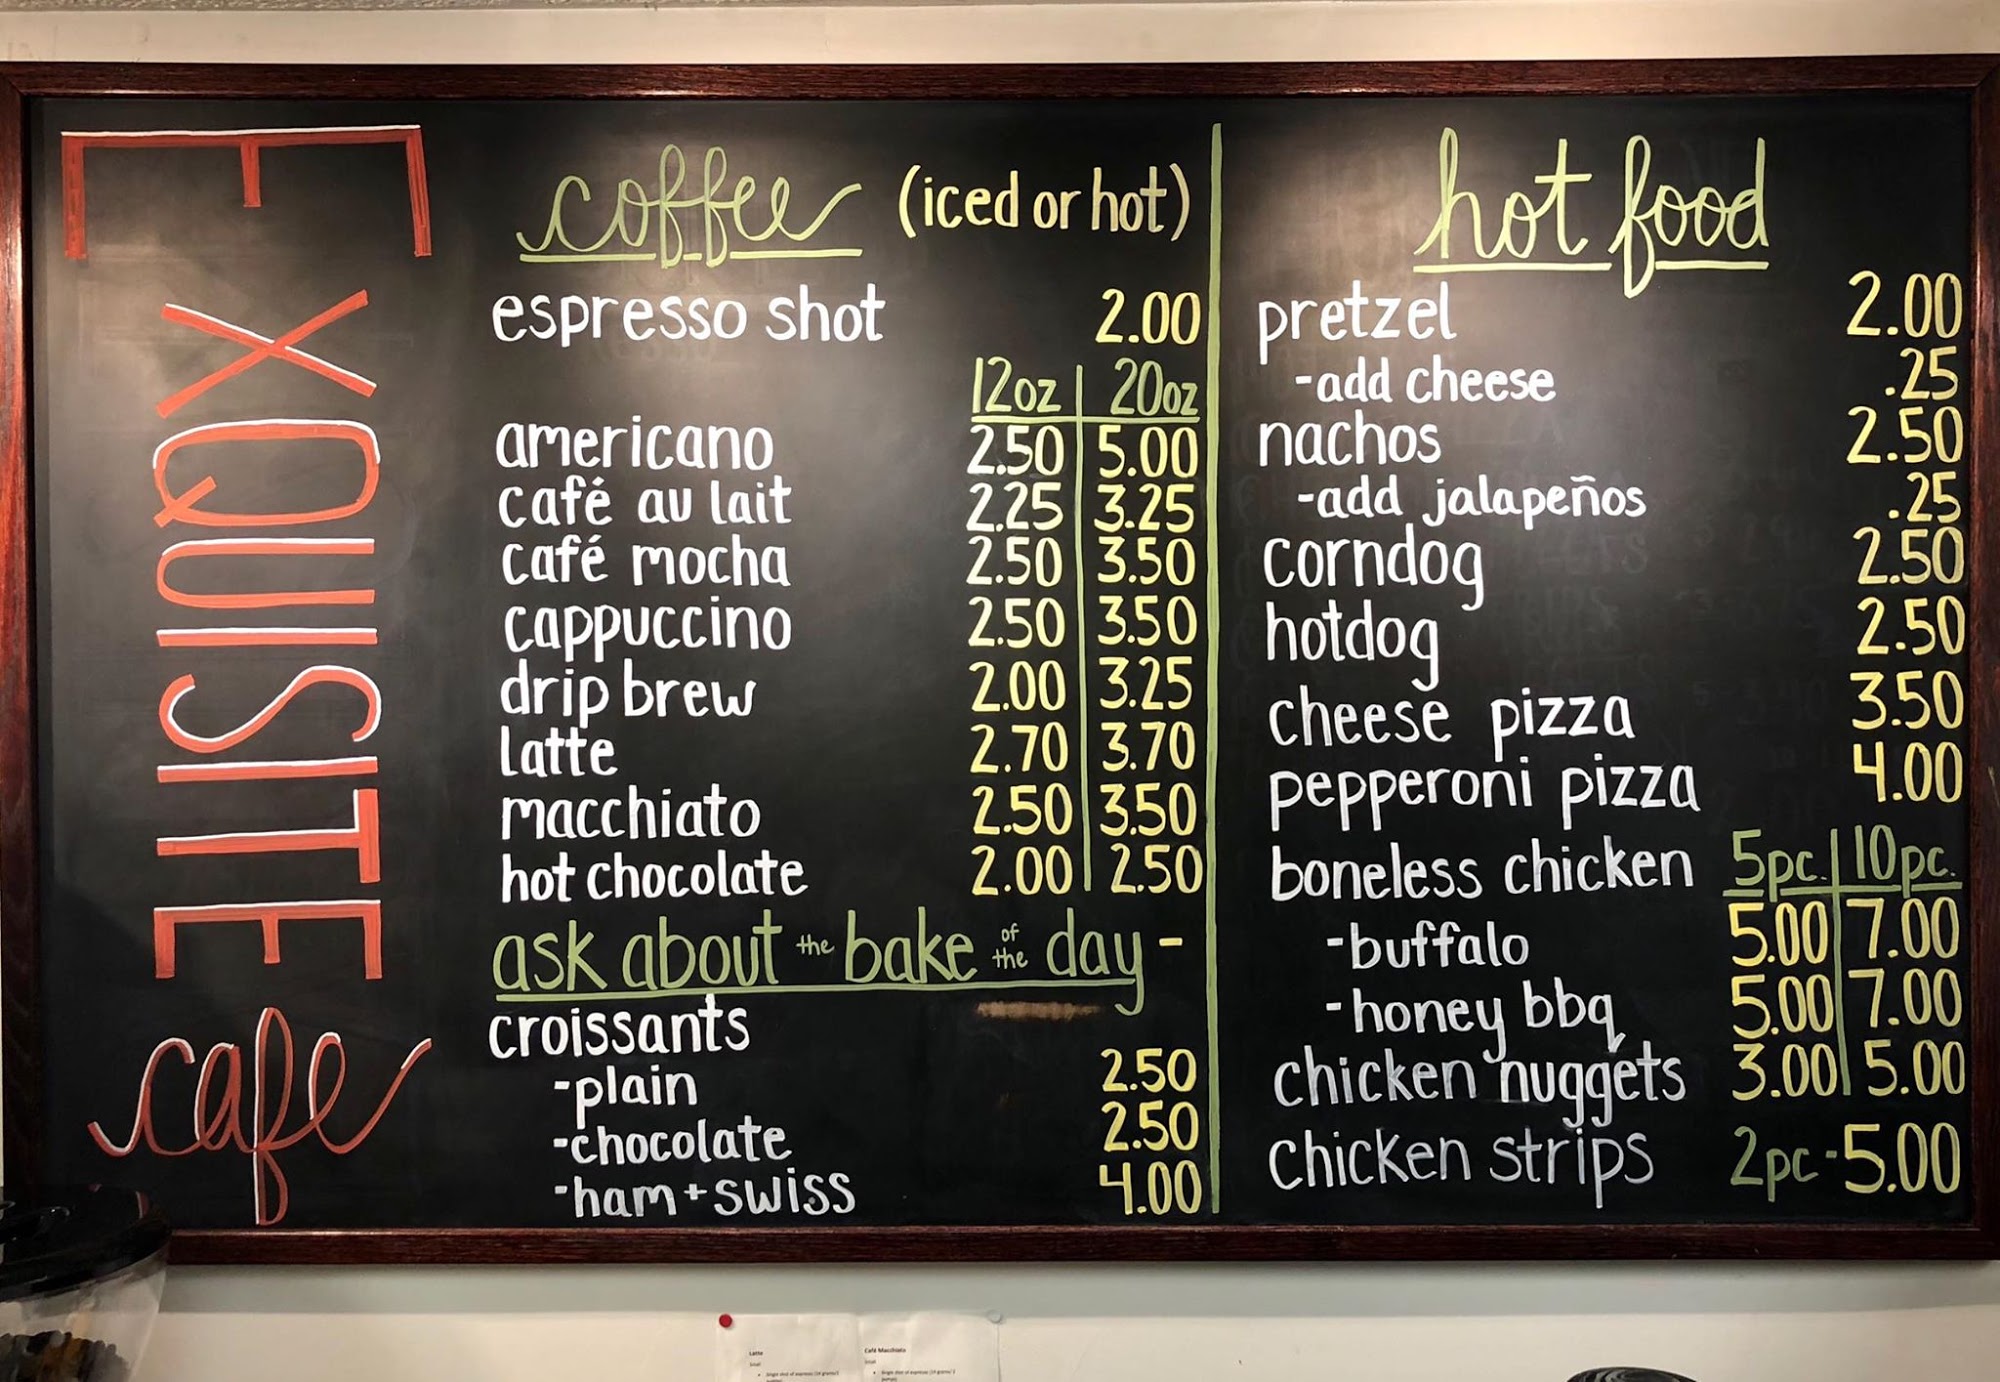 EXQUISITE
cafe
coffee (iced or hot)
espresso shot 2.00
12oz 20oz
americano 2.50 5.00
café au lait 2.25 3.25
café mocha 2.50 3.50
cappuccino 2.50 3.50
drip brew 2.00 3.25
latte 2.70 3.70
macchiato 2.50 3.50
hot chocolate 2.00 2.50
ask about the bake of the day -
croissants
-plain 2.50
-chocolate 2.50
-ham + swiss 4.00
hot food
pretzel 2.00
-add cheese .25
nachos 2.50
-add jalapeños .25
corndog 2.50
hotdog 2.50
cheese pizza 3.50
pepperoni pizza 4.00
boneless chicken 5pc. 10pc.
-buffalo 5.00 7.00
-honey bbq 5.00 7.00
chicken nuggets 3.00 5.00
chicken strips 2pc - 5.00
Latte
Café Macchiato